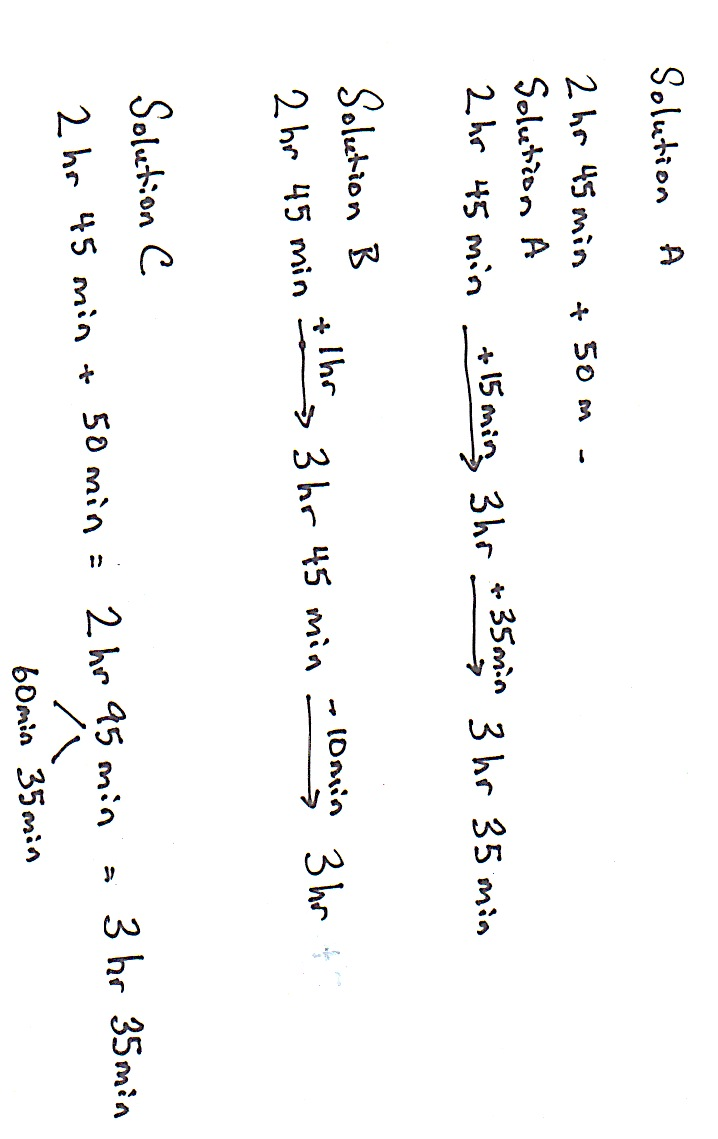 Solution A
2 hr 45 min + 50 m -
Solution A
2 hr 45 min +15 min → 3hr +35min → 3 hr 35 min
Solution B
2 hr 45 min +1hr → 3 hr 45 min -10min → 3hr
Solution C
2 hr 45 min + 50 min = 2 hr 95 min = 3 hr 35min
60min 35min